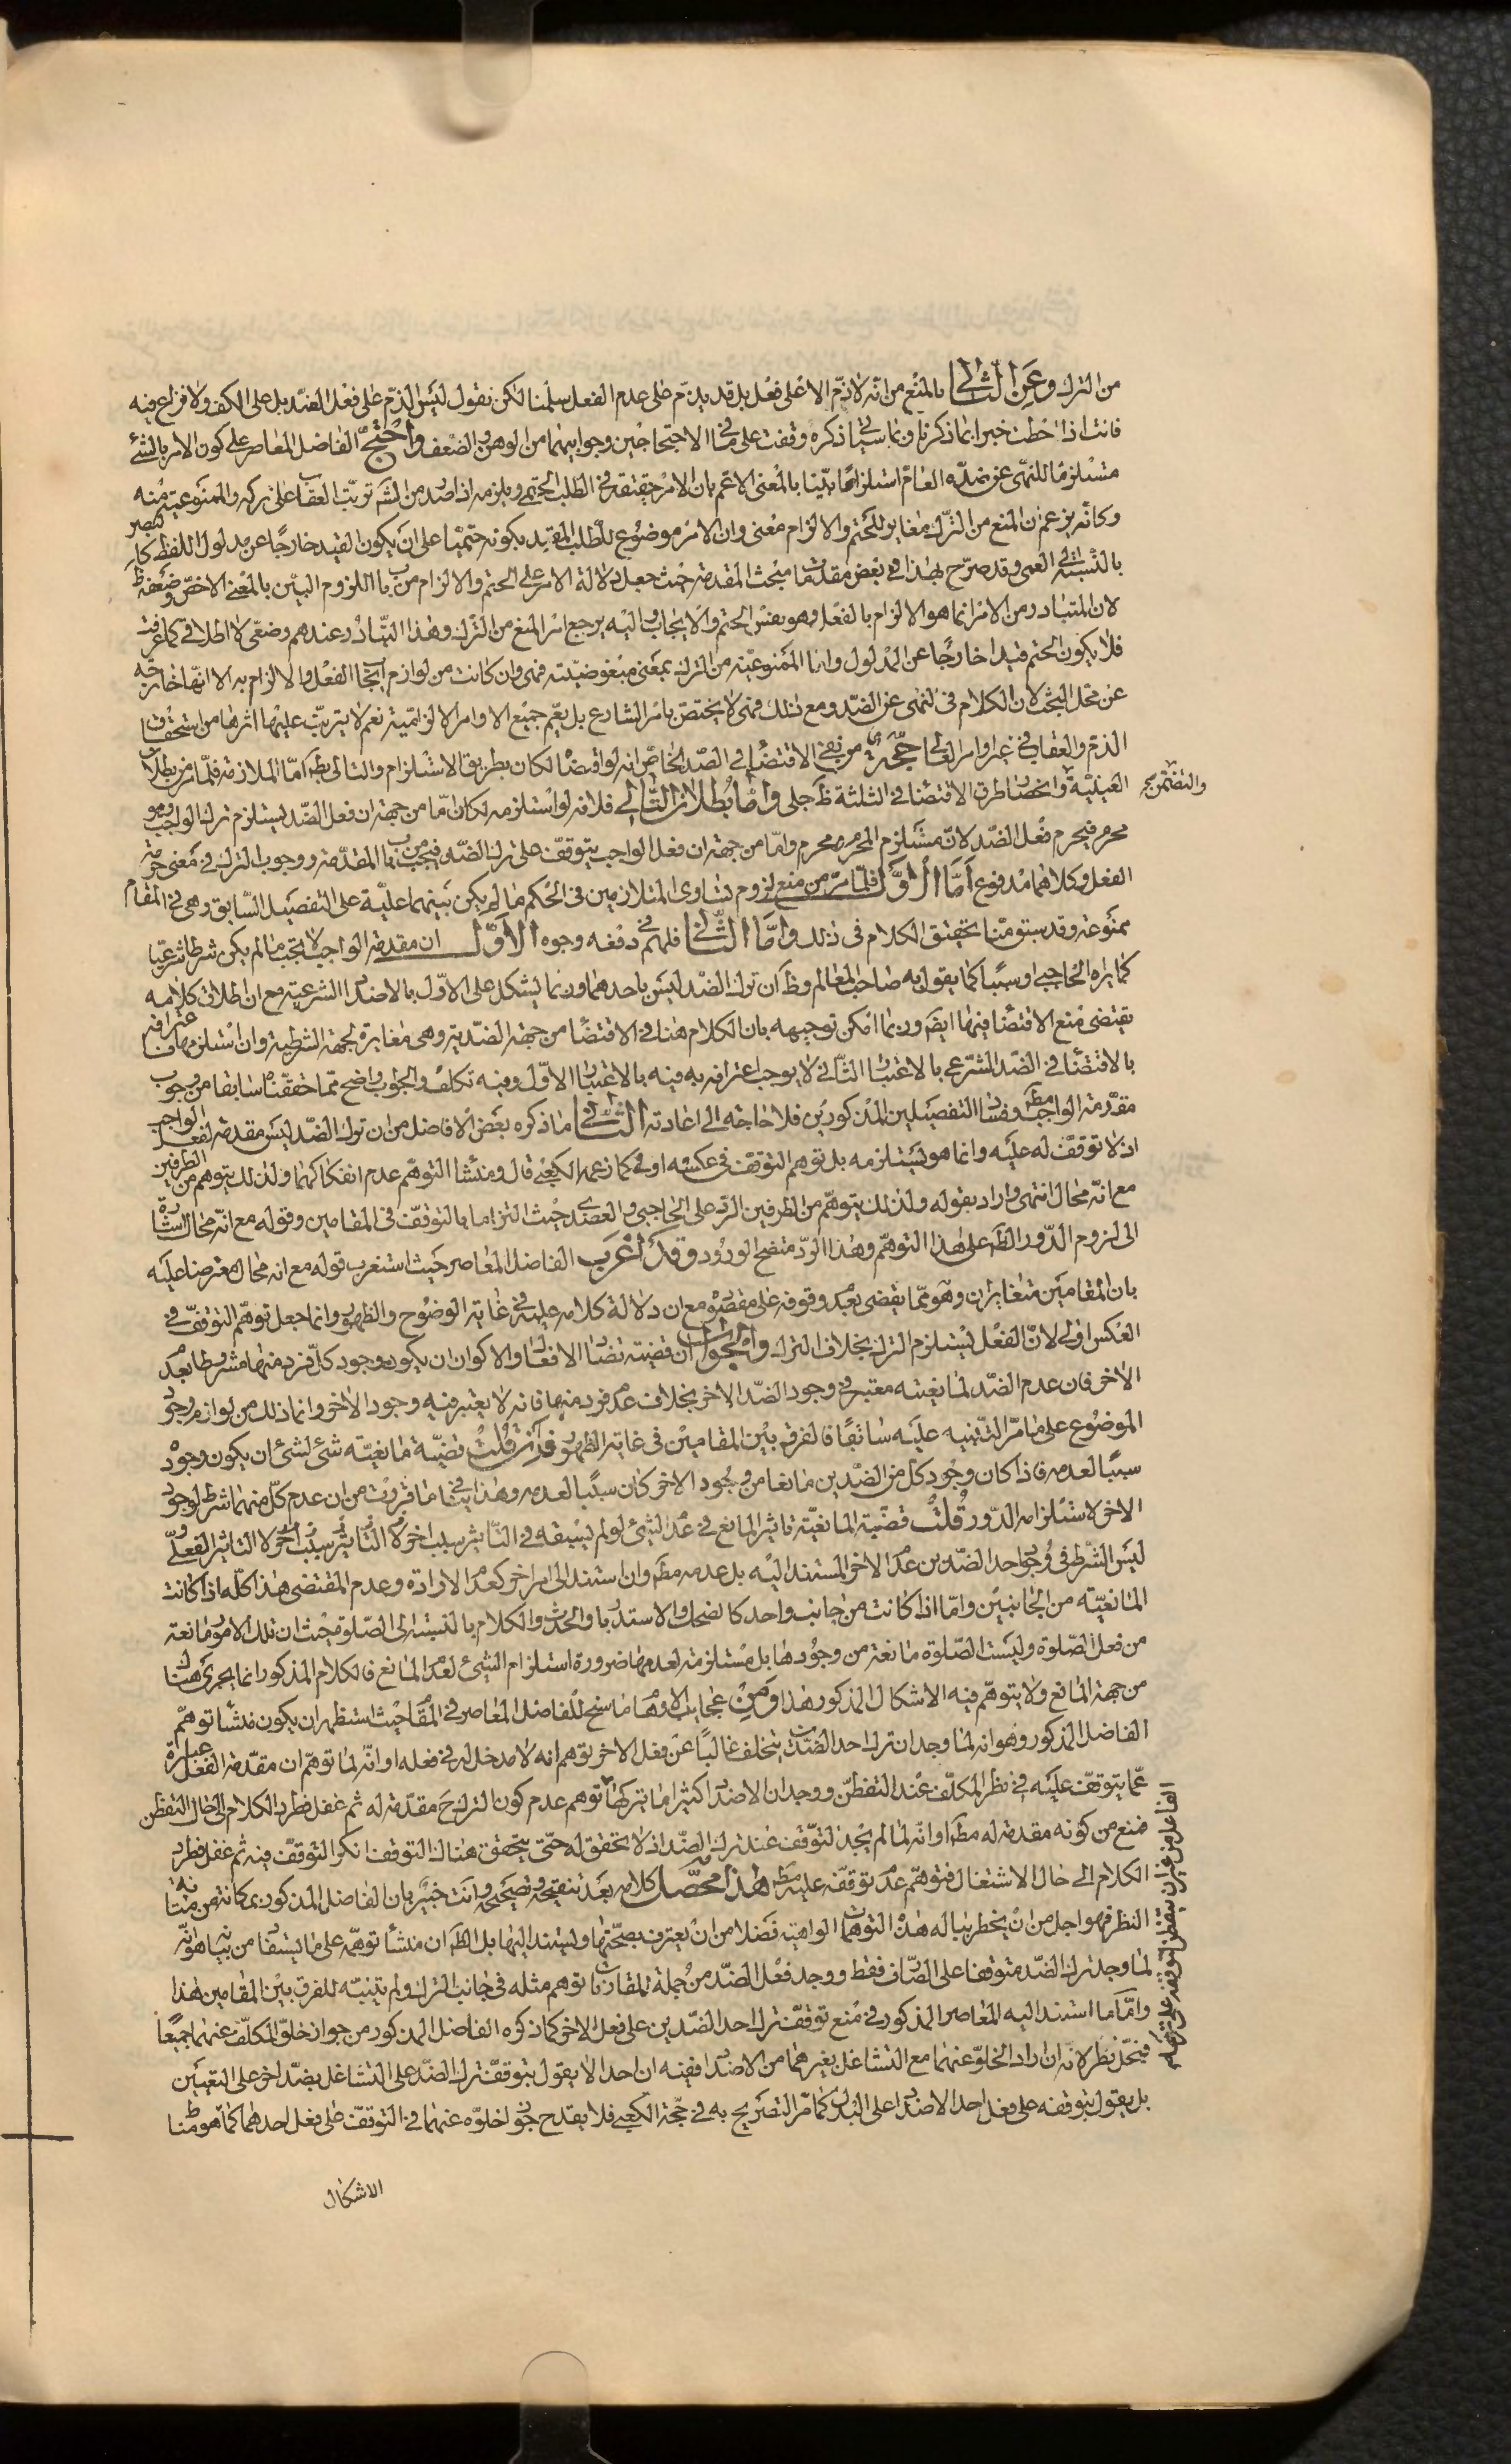 من الترك وعن الثاني بالمنع من انّه لا ذمّ الا على فعل بل قد يذمّ على عدم الفعل سلّمنا لكن نقول ليس الذمّ على فعل الضدّ بل على الكف ولا نزاع فيه
فانت اذا احطت خبرا بما ذكرنا وبما سيأتي ذكره وقفت على ما في الاحتجاجين وجوابيهما من الوهن والضعف واحتجّ الفاضل المعاصر على كون الامر بالشئ
مستلزما للنهى عن ضدّه العامّ استلزامًا بيّنا بالمعنى الاعم بان الامر حقيقة في الطلب الحتمى ويلزمه اذا صدر من الشّ ترتّب العقاب على تركه والممنوعيّة منه
وكانّه يزعم ان المنع من الترك مغاير للحتم والالزام معنى وان الامر موضوع للطلب المقيد بكونه حتميّا على ان يكون القيد خارجًا عن مدلول اللفظ كالبصر
بالنّسبة الى العمى وقد صرّح بهذا في بعض مقدّمات مبحث المقدمة حيث جعل دلالة الامر على الحتم والالزام من باب اللزوم البيّن بالمعنى الاخصّ وضعفه ظ
لان المتبادر من الامر انما هو الالزام بالفعل وهو نفس الحتم والايجاب واليه يرجع امر المنع من الترك وهذا التبادر عندهم وضعّى لا اطلاقى كما عرفت
فلا يكون الحتم قيدا خارجًا عن المدلول واما الممنوعيّة من الترك بمعنى مبغوضيّته فهى وان كانت من لوازم ايجاب الفعل والالزام به الا انّها خارجة
عن محل البحث لان الكلام فى النهى عن الضدّ ومع ذلك فهى لا يختصّ بامر الشارع بل يعمّ جميع الاوامر الالزاميّة نعم لا يترتّب عليها اثرها من استحقاق
الذمّ والعقاب في غير اوامر العالى حجّة من نفى الاقتضاء في الضدّ الخاصّ انه لو اقتضاه لكان بطريق الاستلزام والتالى بط امّا الملازمة فلما مرّ من بطلان
العينيّة وانحصار طرق الاقتضاء في الثلثة ظ جلى وامّا بطلان التّالي فلانه لو استلزمه لكان امّا من جهة ان فعل الضدّ يستلزم ترك الواجب وهو
والتضمّن صح
محرم فيحرم فعل الضدّ لانّ مستلزم المحرم محرم وامّا من جهة ان فعل الواجب يتوقّف على ترك الضدّ فيجب من باب المقدّمة ووجوب الترك في معنى حرمة
الفعل وكلاهما مدفوع امّا الاوّل فلما مرّ من منع لزوم تساوى المتلازمين فى الحكم ما لم يكن بينهما عليّة على التفصيل السّابق وهى فى المقام
ممنوعة وقد سبق منّا تحقيق الكلام فى ذلك وامّا الثّانى فلهم في دفعه وجوه الاوّل ان مقدمة الواجب لا تجب ما لم يكن شرطا شرعيّا
كما يراه الحاجبى او سببا كما يقول به صاحب المعالم وظ ان ترك الضد ليس باحدهما وربما يشكل على الاوّل بالاضداد الشرعية مع ان اطلاق كلامه
يقتضى منع الاقتضاء فيها ايضا وربما امكن توجيهه بان الكلام هنا فى الاقتضاء من جهة الضدّية وهى مغايرة لجهة الشرطية وان استلزمها فاعترافه
بالاقتضاء في الضدّ الشرعى بالاعتبار الثّانى لا يوجب اعترافه به فيه بالاعتبار الاوّل وفيه تكلّف والجواب واضح ممّا حققناه سابقا من وجوب
مقدّمة الواجب مط وفساد التفصيلين المذكورين فلا حاجة الى اعادته الثّاني ما ذكره بعض الافاضل من ان ترك الضدّ ليس مقدمة لفعل الواجب
اذ لا توقّف له عليه وانما هو يستلزمه بل توهّم التوقف فى عكسه اولى كما زعمه الكعبى قال ومنشأ التوهّم عدم انفكاكهما ولذلك يتوهّم من الطرفين
مع انّه محال انتهى واراد بقوله ولذلك يتوهّم من الطرفين الردّ على الحاجبى والعضدى حيث التزما بالتوقّف فى المقامين وقوله مع انّه محال اشارة
الى لزوم الدّور الظ على هذا التوهّم وهذا الردّ متضح الورود وقد اغرب الفاضل المعاصر حيث استغرب قوله مع انه محال معترضا عليه
بان المقامين متغايران وهو ممّا يقضى ببعد وقوفه على مقصوده مع ان دلالة كلامه عليه في غاية الوضوح والظهور وانما جعل توهّم التوقّف في
العكس اولى لانّ الفعل يستلزم الترك بخلاف الترك والجواب ان قضيّة تضاد الافعال والاكوان ان يكون وجود كلّ فرد منها مشروطا بعدم
الآخر فان عدم الضدّ لمانعيّته معتبر في وجود الضدّ الآخر بخلاف عدم فرد منها فانه لا يعتبر فيه وجود الآخر وانما ذلك من لوازم وجود
الموضوع على ما مرّ التّنبيه عليه سابقًا فالفرق بين المقامين فى غاية الظهور فان قلت قضيّة مانعيّة شئ لشئ ان يكون وجوده
سببًا لعدمه فاذا كان وجود كل من الضدّين مانعا من وجود الآخر كان سببًا لعدمه وهذا ينافى ما قررت من ان عدم كلّ منهما شرط لوجود
الآخر لاستلزامه الدّور قلت قضيّة المانعيّة تاثير المانع في عدم الشئ لو لم يسبقه فى التأثير سبب آخر لا التأثير الفعلى
ليس الشّرط فى وجود احد الضدّين عدم الآخر المستند اليه بل عدمه مط وان استند الى امر آخر كعدم الارادة وعدم المقتضى هذا كلّه اذا كانت
المانعيّة من الجانبين وامّا اذا كانت من جانب واحد كالضحك والاستدبار والحدث والكلام بالنسبة الى الصّلوة حيث ان تلك الامور مانعة
من فعل الصّلوة وليست الصّلوة مانعة من وجودها بل مستلزمة لعدمها ضرورة استلزام الشئ لعدم المانع فالكلام المذكور انما يجرى هناك
من جهة المانع ولا يتوهّم فيه الاشكال المذكور هذا ومن عجائب الاوهام ما سنح للفاضل المعاصر في المقام حيث استظهر ان يكون منشأ توهّم
الفاضل المذكور وهو انه لما وجد ان ترك احد الضدّين يتخلف غالبًا عن فعل الآخر توهم انه لا مدخل له في فعله او انّه لما توهّم ان مقدّمة الفعل عبارة
عمّا يتوقّف عليه في نظر المكلّف عند التفطّن ووجد ان الاضداد كثيرا ما يتركها توهم عدم كون الترك ح مقدّمة له ثم غفل فطرد الكلام الى حال التفطّن
الفاعل من غير ان يتفطن لتوقفه على تركها صح
فمنع من كونه مقدمة له مط او انّه لما لم يجد التوقّف عند ترك الضدّ اذ لا تحقق له حتّى يتحقق هناك التوقف انكر التوقّف فيه ثم غفل فطرد
الكلام الى حال الاشتغال فتوهّم عدم توقّفه عليه مط هذا محصّل كلامه بعد تنقيحه وتصحيحه وانت خبير بان الفاضل المذكور بمكانته من متانة
النظر فهو اجل من ان يخطر بباله هذه التوهمات الواهية فضلا من ان يعترف بصحّتها ويستند اليها بل الظ ان منشأ توهّمه على ما يستفاد من بيانه هو انّه
لما وجد ترك الضدّ متوقفا على الصّارف فقط ووجد فعل الضدّ من جملة المقارنات توهم مثله فى جانب الترك ولم يتنبّه للفرق بين المقامين هذا
وامّا ما استند اليه المعاصر المذكور في منع توقّف ترك احد الضدّين على فعل الآخر كما ذكره الفاضل المذكور من جواز خلوّ المكلّف عنهما جميعًا
فمحلّ نظر لانّه ان اراد الخلوّ عنهما مع التشاغل بغيرهما من الاضداد ففيه ان احدا لا يقول بتوقّف ترك الضدّ على التشاغل بضدّ آخر على التعيين
بل يقول بتوقفه على فعل احد الاضداد على البدل كما مرّ التصريح به في حجّة الكعبى فلا يقدح جواز خلوّه عنهما في التوقّف على فعل احدهما كما هو مناط
الاشكال